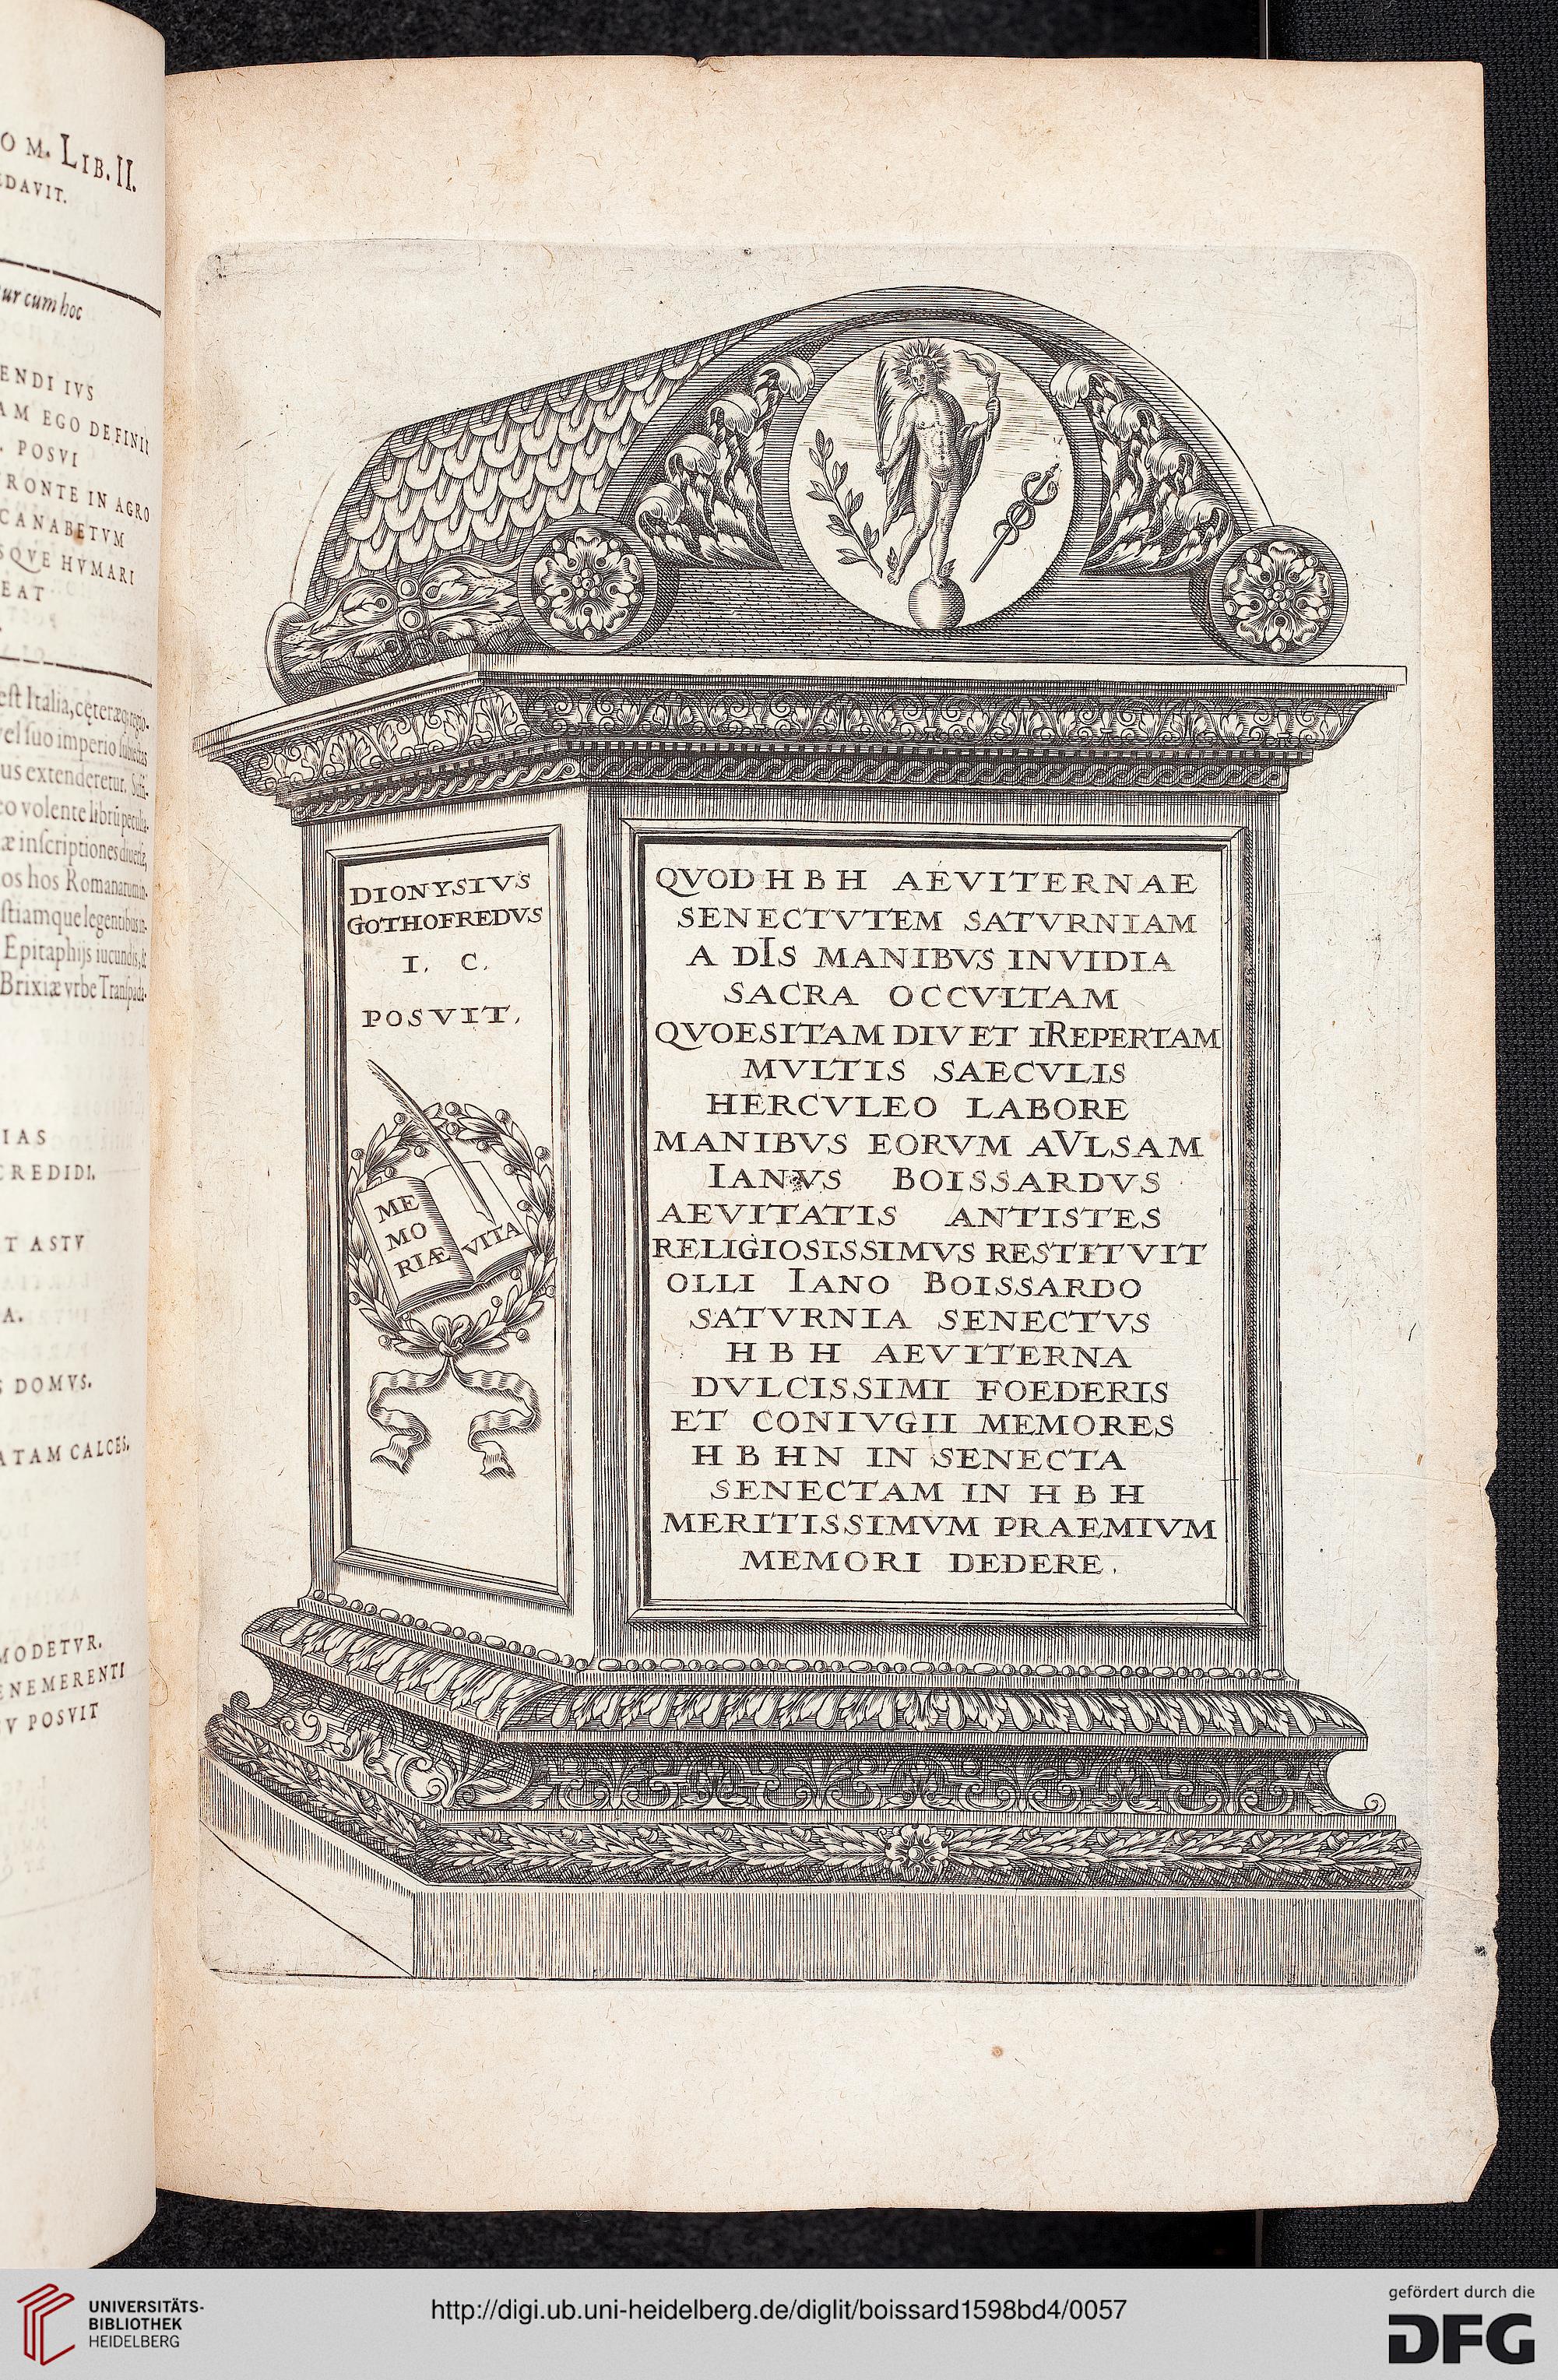 O M. LIB. II.
EDAVIT.
ur cum hoc
ENDI IVS
AM EGO DEFINII
. POSVI
FRONTE IN AGRO
CANABETVM
SQVE HVMARI
EAT
est Italia, cęteræq; regio-
vel suo imperio subiectas
us extenderetur.
eo volente librū peculia-
æ inscriptiones diuersæ,
os hos Romanarum in-
stiamque legentibus in-
Epitaphijs iucundis, &
Brixiæ vrbe Transpada-
IAS
CREDIDI.
T ASTV
A.
S DOMVS.
ATAM CALCES.
MODETVR.
ENEMERENTI
V POSVIT
DIONYSIVS
GOTHOFREDVS
I. C.
POSVIT,
ME
MO
RIÆ VITA
QVOD H B H AEVITERNAE
SENECTVTEM SATVRNIAM
A DIS MANIBVS INVIDIA
SACRA OCCVLTAM
QVOESITAM DIV ET IREPERTAM
MVLTIS SAECVLIS
HERCVLEO LABORE
MANIBVS EORVM AVLSAM
IANVS BOISSARDVS
AEVITATIS ANTISTES
RELIGIOSISSIMVS RESTITVIT
OLLI IANO BOISSARDO
SATVRNIA SENECTVS
H B H AEVITERNA
DVLCISSIMI FOEDERIS
ET CONIVGII MEMORES
H B H N IN SENECTA
SENECTAM IN H B H
MERITISSIMVM PRAEMIVM
MEMORI DEDERE.
UNIVERSITÄTS-
BIBLIOTHEK
HEIDELBERG
http://digi.ub.uni-heidelberg.de/diglit/boissard1598bd4/0057
gefördert durch die
DFG